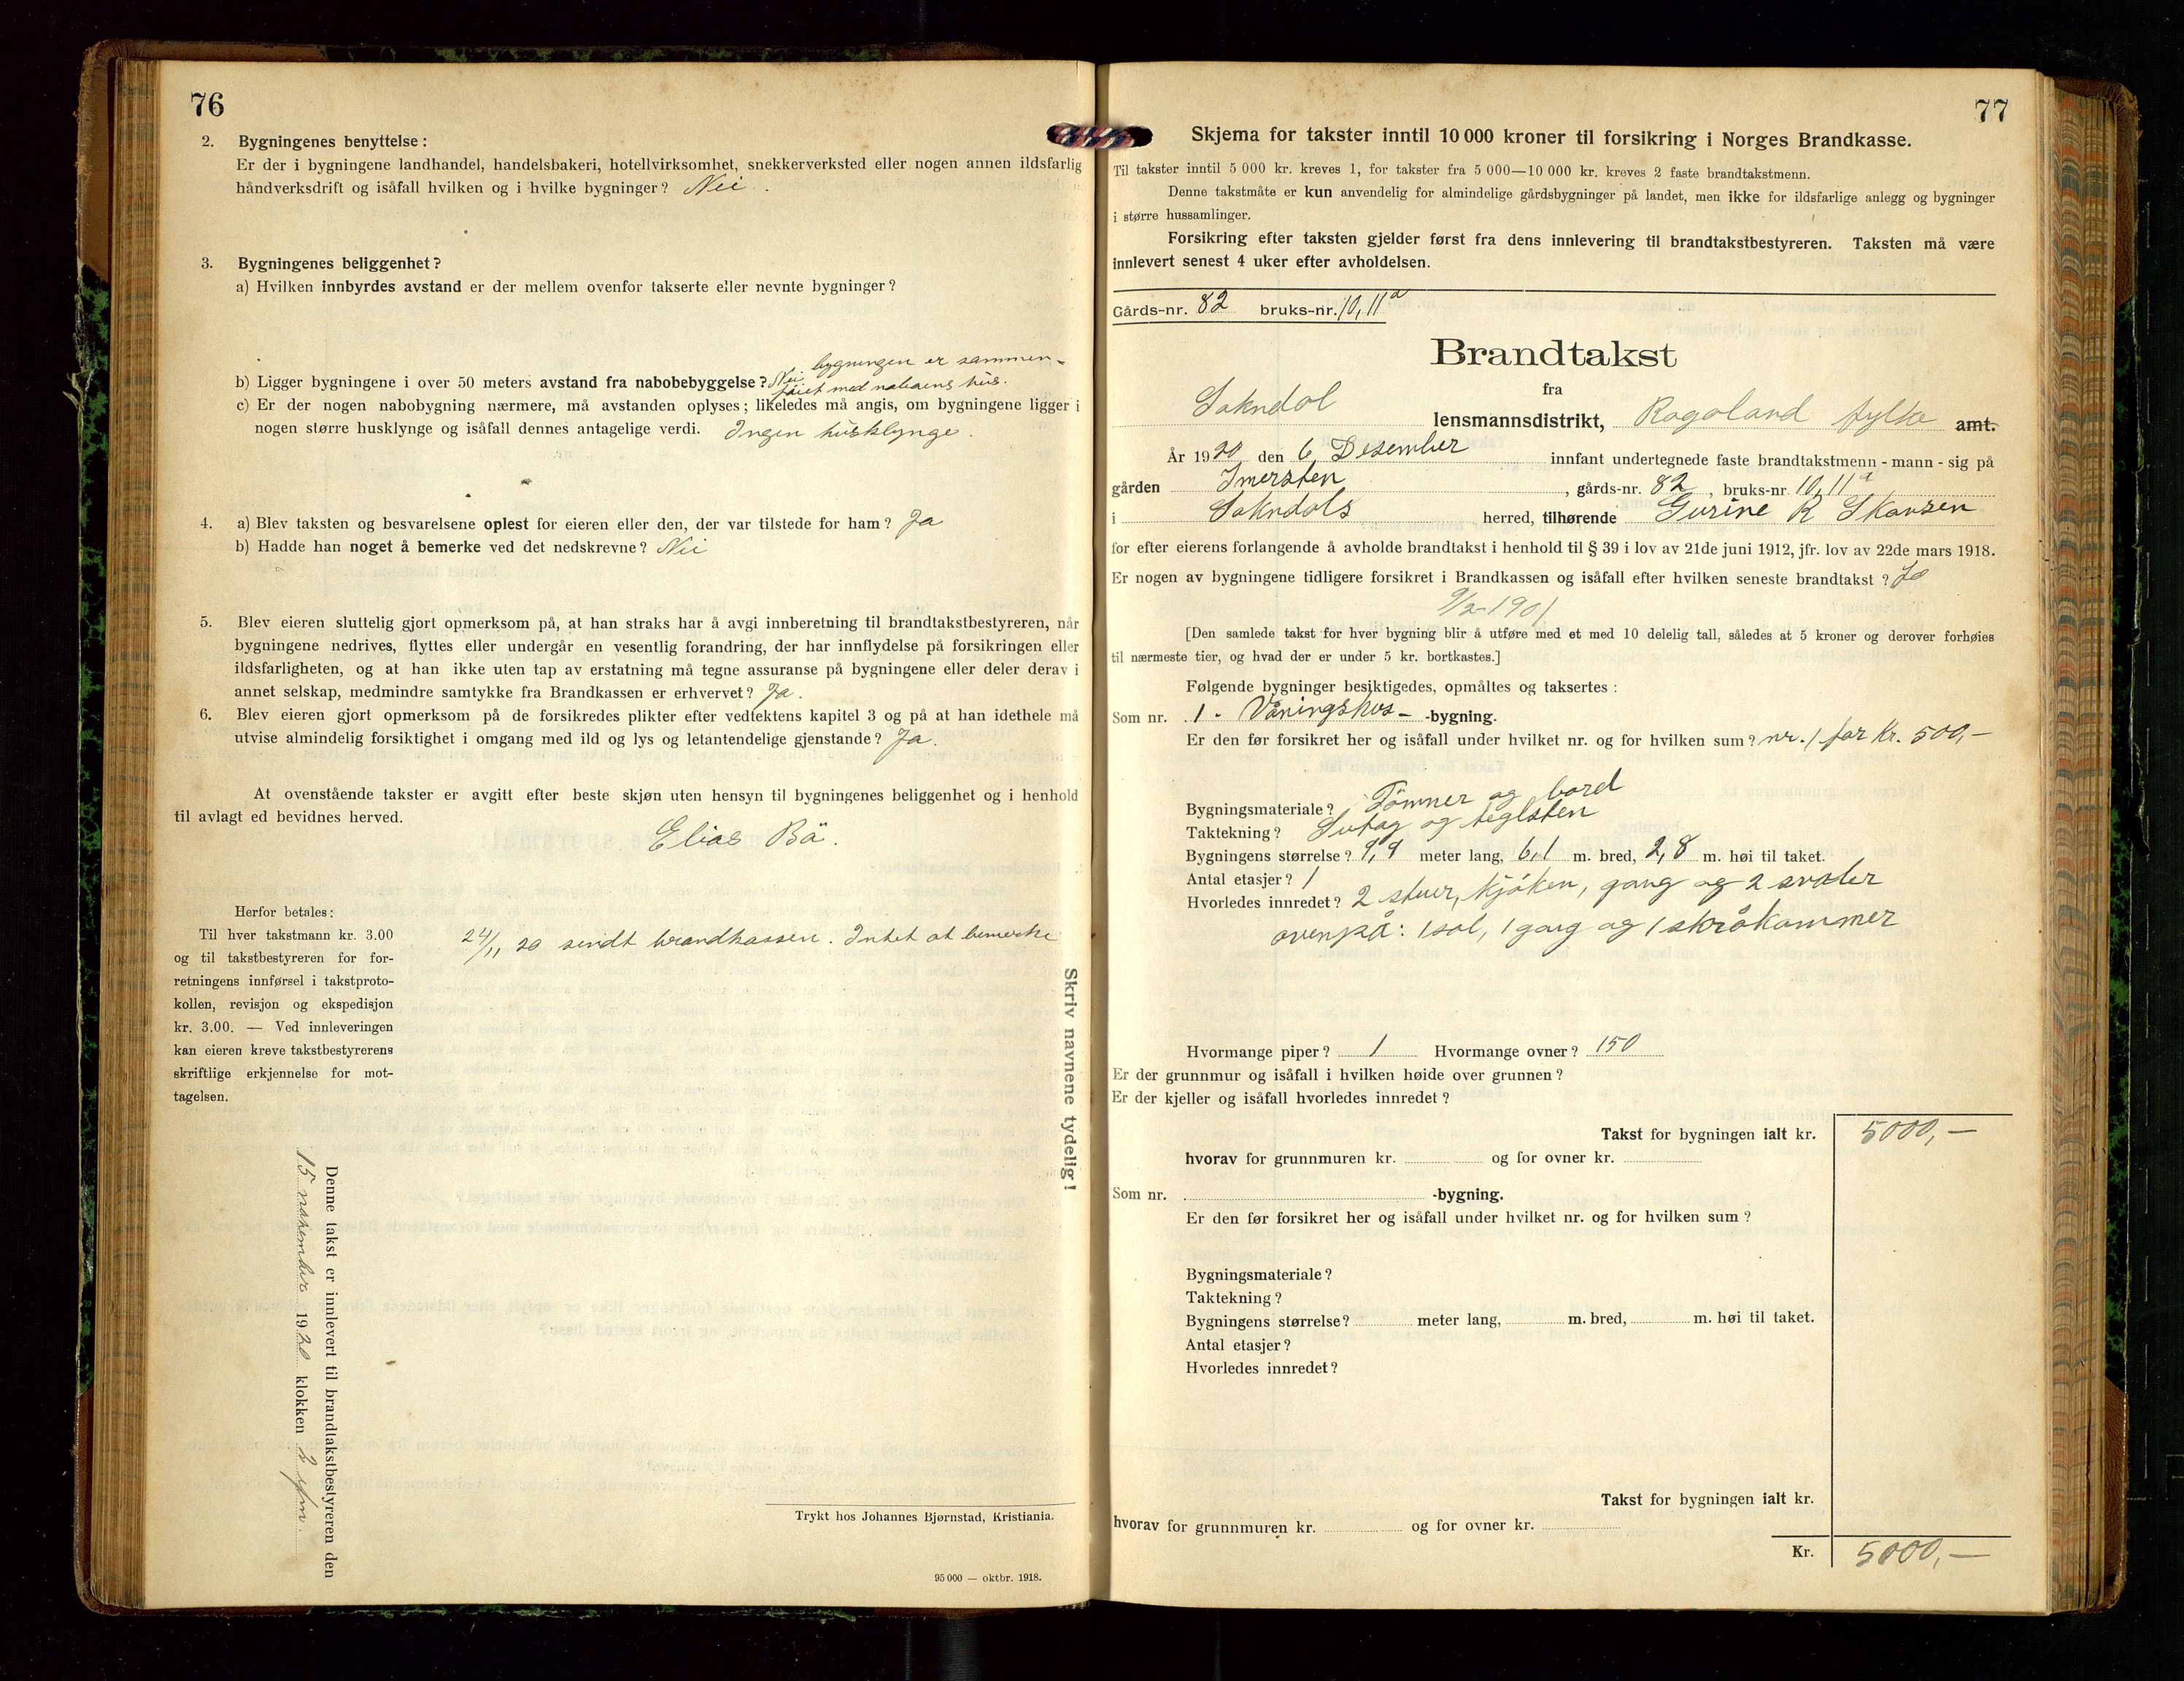 76
2. Bygningenes benyttelse:
Er der i bygningene landhandel, handelsbakeri, hotellvirksomhet, snekkerverksted eller nogen annen ildsfarlig
håndverksdrift og isåfall hvilken og i hvilke bygninger? Nei.
3. Bygningenes beliggenhet?
a) Hvilken innbyrdes avstand er der mellem ovenfor takserte eller nevnte bygninger?
b) Ligger bygningene i over 50 meters avstand fra nabobebyggelse? Nei. bygningen er sammen-
føiet med naboens hus.
c) Er der nogen nabobygning nærmere, må avstanden oplyses; likeledes må angis, om bygningene ligger i
nogen større husklynge og isåfall dennes antagelige verdi. Ingen husklynge.
4. a) Blev taksten og besvarelsene oplest for eieren eller den, der var tilstede for ham? Ja
b) Hadde han noget å bemerke ved det nedskrevne? Nei
5. Blev eieren sluttelig gjort opmerksom på, at han straks har å avgi innberetning til brandtakstbestyreren, når
bygningene nedrives, flyttes eller undergår en vesentlig forandring, der har innflydelse på forsikringen eller
ildsfarligheten, og at han ikke uten tap av erstatning må tegne assuranse på bygningene eller deler derav i
annet selskap, medmindre samtykke fra Brandkassen er erhvervet? Ja.
6. Blev eieren gjort opmerksom på de forsikredes plikter efter vedtektens kapitel 3 og på at han idethele må
utvise almindelig forsiktighet i omgang med ild og lys og letantendelige gjenstande? Ja.
At ovenstående takster er avgitt efter beste skjøn uten hensyn til bygningenes beliggenhet og i henhold
til avlagt ed bevidnes herved.
Elias Bä.
Herfor betales:
Til hver takstmann kr. 3.00
og til takstbestyreren for for-
retningens innførsel i takstproto-
kollen, revisjon og ekspedisjon
kr. 3.00. — Ved innleveringen
kan eieren kreve takstbestyrerens
skriftlige erkjennelse for mot-
tagelsen.
24/11 20 sendt brandkassen. Intet at bemerke
Skriv navnene tydelig!
Denne takst er innlevert til brandtakstbestyreren den
15 november 1920 klokken 2
Trykt hos Johannes Bjørnstad, Kristiania.
95 000 — oktbr. 1918.
77
Skjema for takster inntil 10 000 kroner til forsikring i Norges Brandkasse.
Til takster inntil 5 000 kr. kreves 1, for takster fra 5 000—10 000 kr. kreves 2 faste brandtakstmenn.
Denne takstmåte er kun anvendelig for almindelige gårdsbygninger på landet, men ikke for ildsfarlige anlegg og bygninger
i større hussamlinger.
Forsikring efter taksten gjelder først fra dens innlevering til brandtakstbestyreren. Taksten må være
innlevert senest 4 uker efter avholdelsen.
Gårds-nr. 82 bruks-nr. 10, 11a
Brandtakst
fra
Sokndal lensmannsdistrikt, Rogaland fylke amt.
År 1920 den 6 Desember innfant undertegnede faste brandtakstmenn - mann - sig på
gården Imersten, gårds-nr. 82, bruks-nr. 10, 11a
i Sokndals herred, tilhørende Gurine R Skansen
for efter eierens forlangende å avholde brandtakst i henhold til § 39 i lov av 21de juni 1912, jfr. lov av 22de mars 1918.
Er nogen av bygningene tidligere forsikret i Brandkassen og isåfall efter hvilken seneste brandtakst? Ja
9/2-1901
[Den samlede takst for hver bygning blir å utføre med et med 10 delelig tall, således at 5 kroner og derover forhøies
til nærmeste tier, og hvad der er under 5 kr. bortkastes.]
Følgende bygninger besiktigedes, opmåltes og taksertes:
Som nr. 1. Våningshus- -bygning.
Er den før forsikret her og isåfall under hvilket nr. og for hvilken sum? nr. 1 for Kr. 500,-
Bygningsmateriale? Tömmer og bord
Taktekning? Sutag og teglsten
Bygningens størrelse? 9,9 meter lang, 6,1 m. bred, 2,8 m. høi til taket.
Antal etasjer? 1
Hvorledes innredet? 2 stuer, kjöken, gang og 2 svaler
ovenpå: 1 sal, 1 gang og 1 skråkammer
Hvormange piper? 1 Hvormange ovner? 150
Er der grunnmur og isåfall i hvilken høide over grunnen?
Er der kjeller og isåfall hvorledes innredet?
Takst for bygningen ialt kr. 5000,—
hvorav for grunnmuren kr. og for ovner kr.
Som nr. -bygning.
Er den før forsikret her og isåfall under hvilket nr. og for hvilken sum?
Bygningsmateriale?
Taktekning?
Bygningens størrelse? meter lang, m. bred, m. høi til taket.
Antal etasjer?
Hvorledes innredet?
Takst for bygningen ialt kr.
hvorav for grunnmuren kr. og for ovner kr.
Kr. 5000,—